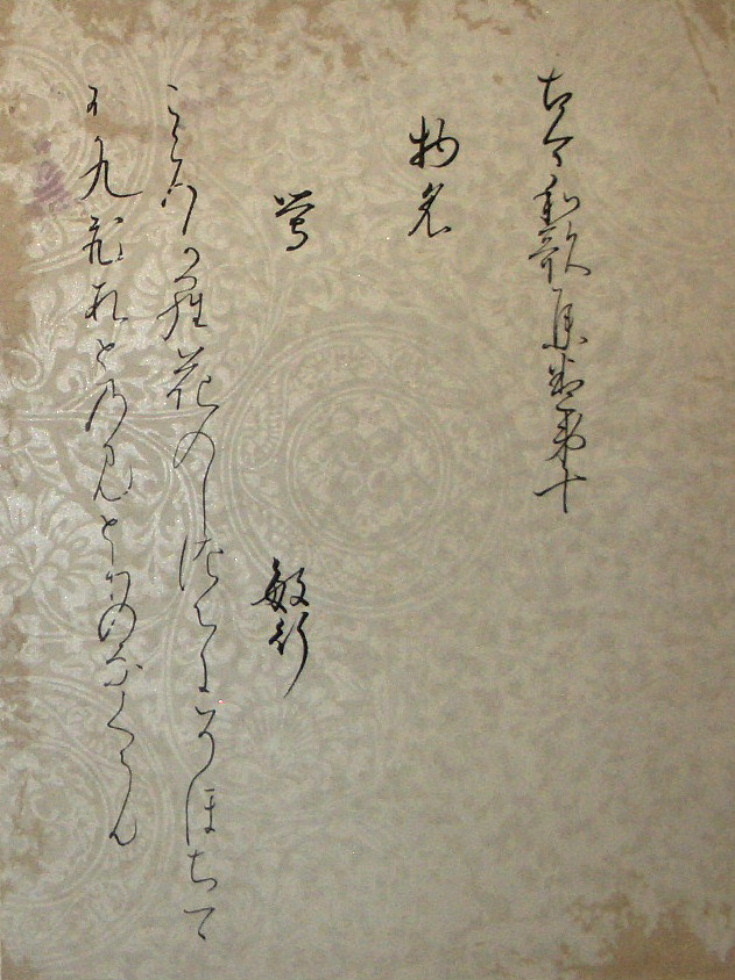 古今和歌集巻第十
物名
鶯
敏行
こゝろから花のしつくにそほちつ
うくひすとのみとりのなくらん